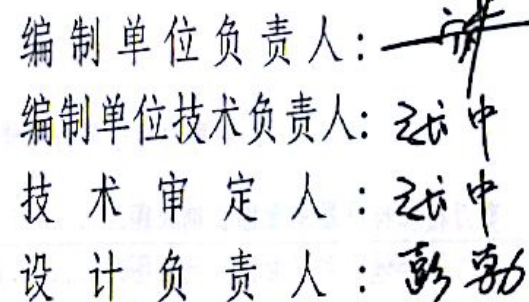 编制单位负责人:
编制单位技术负责人:
技术审定人:
设计负责人:彭勃